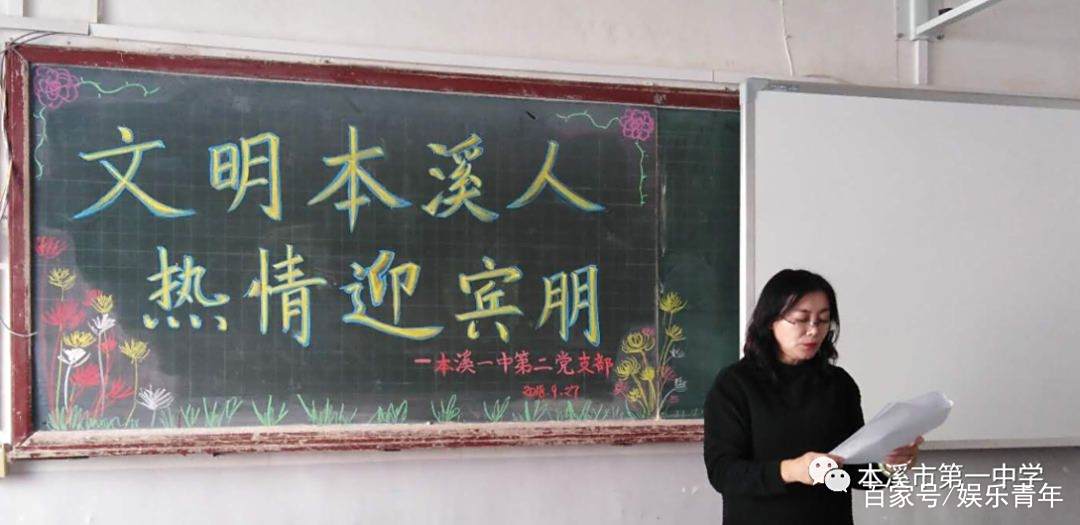 文明本溪人
热情迎宾朋
一本溪一中第二党支部
2018.9.27
本溪市第一中学
百家号/娱乐青年